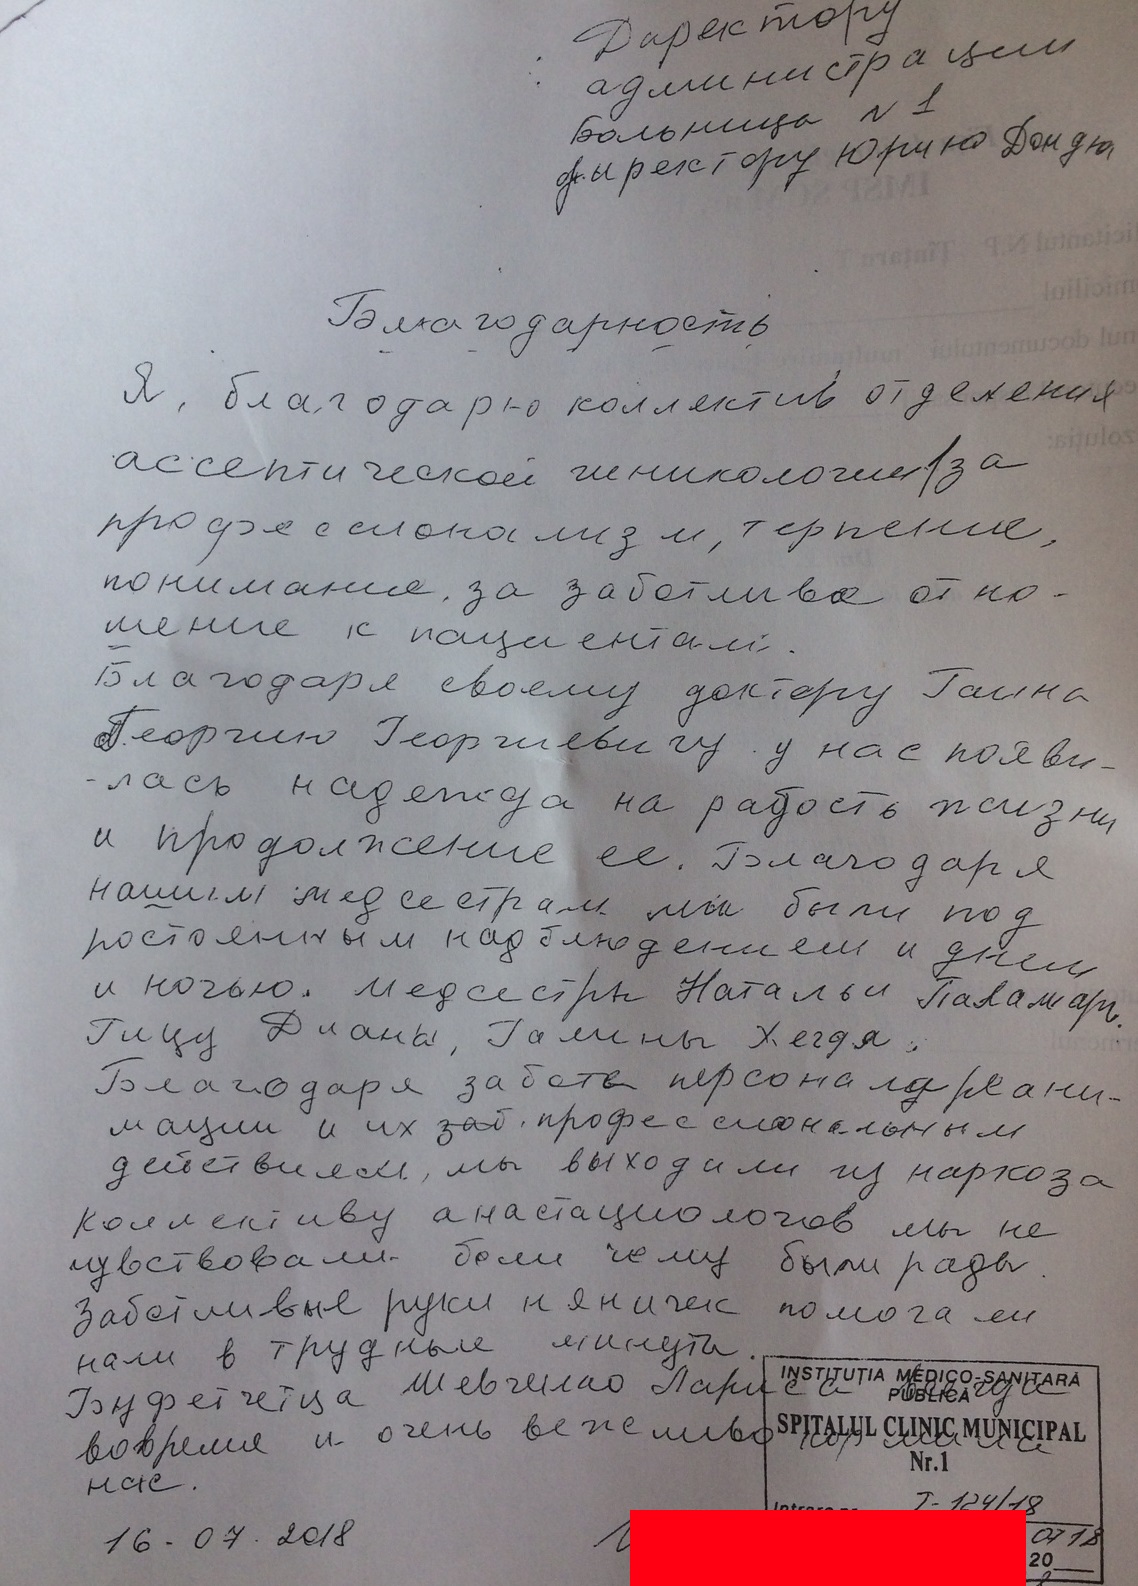 Директору
администрации
Больница N 1
директору Юрию Дондю
Благодарность
Я, благодарю коллектив отделения
ассептической гиникологии за
профессионализм, терпение,
понимание, за заботливое отно-
шение к пациентам.
Благодаря своему доктору Гаина
Георгию Георгиевичу у нас появи-
-лась надежда на радость жизни
и продолжение ее. Благодаря
нашим медсестрам мы были под
постоянным надблюдением и днем
и ночью. медсестры Натальи Паламарь.
Гицу Дианы, Галины Хегдя.
Благодаря заботе персонала реани-
мации и их заб. профессиональным
действиям, мы выходили из наркоза
Коллективу анастациологов мы не
чувствовали боли чему были рады.
Заботливые руки няничек помогали
нам в трудные минуты.
Буфетчица Шевченко Лариса всегда
вовремя и очень вежливо кормила
нас.
16-07.2018
INSTITUŢIA MEDICO-SANITARĂ
PUBLICĂ
SPITALUL CLINIC MUNICIPAL
Nr.1
Intrare nr. T-124/18
07 18
20